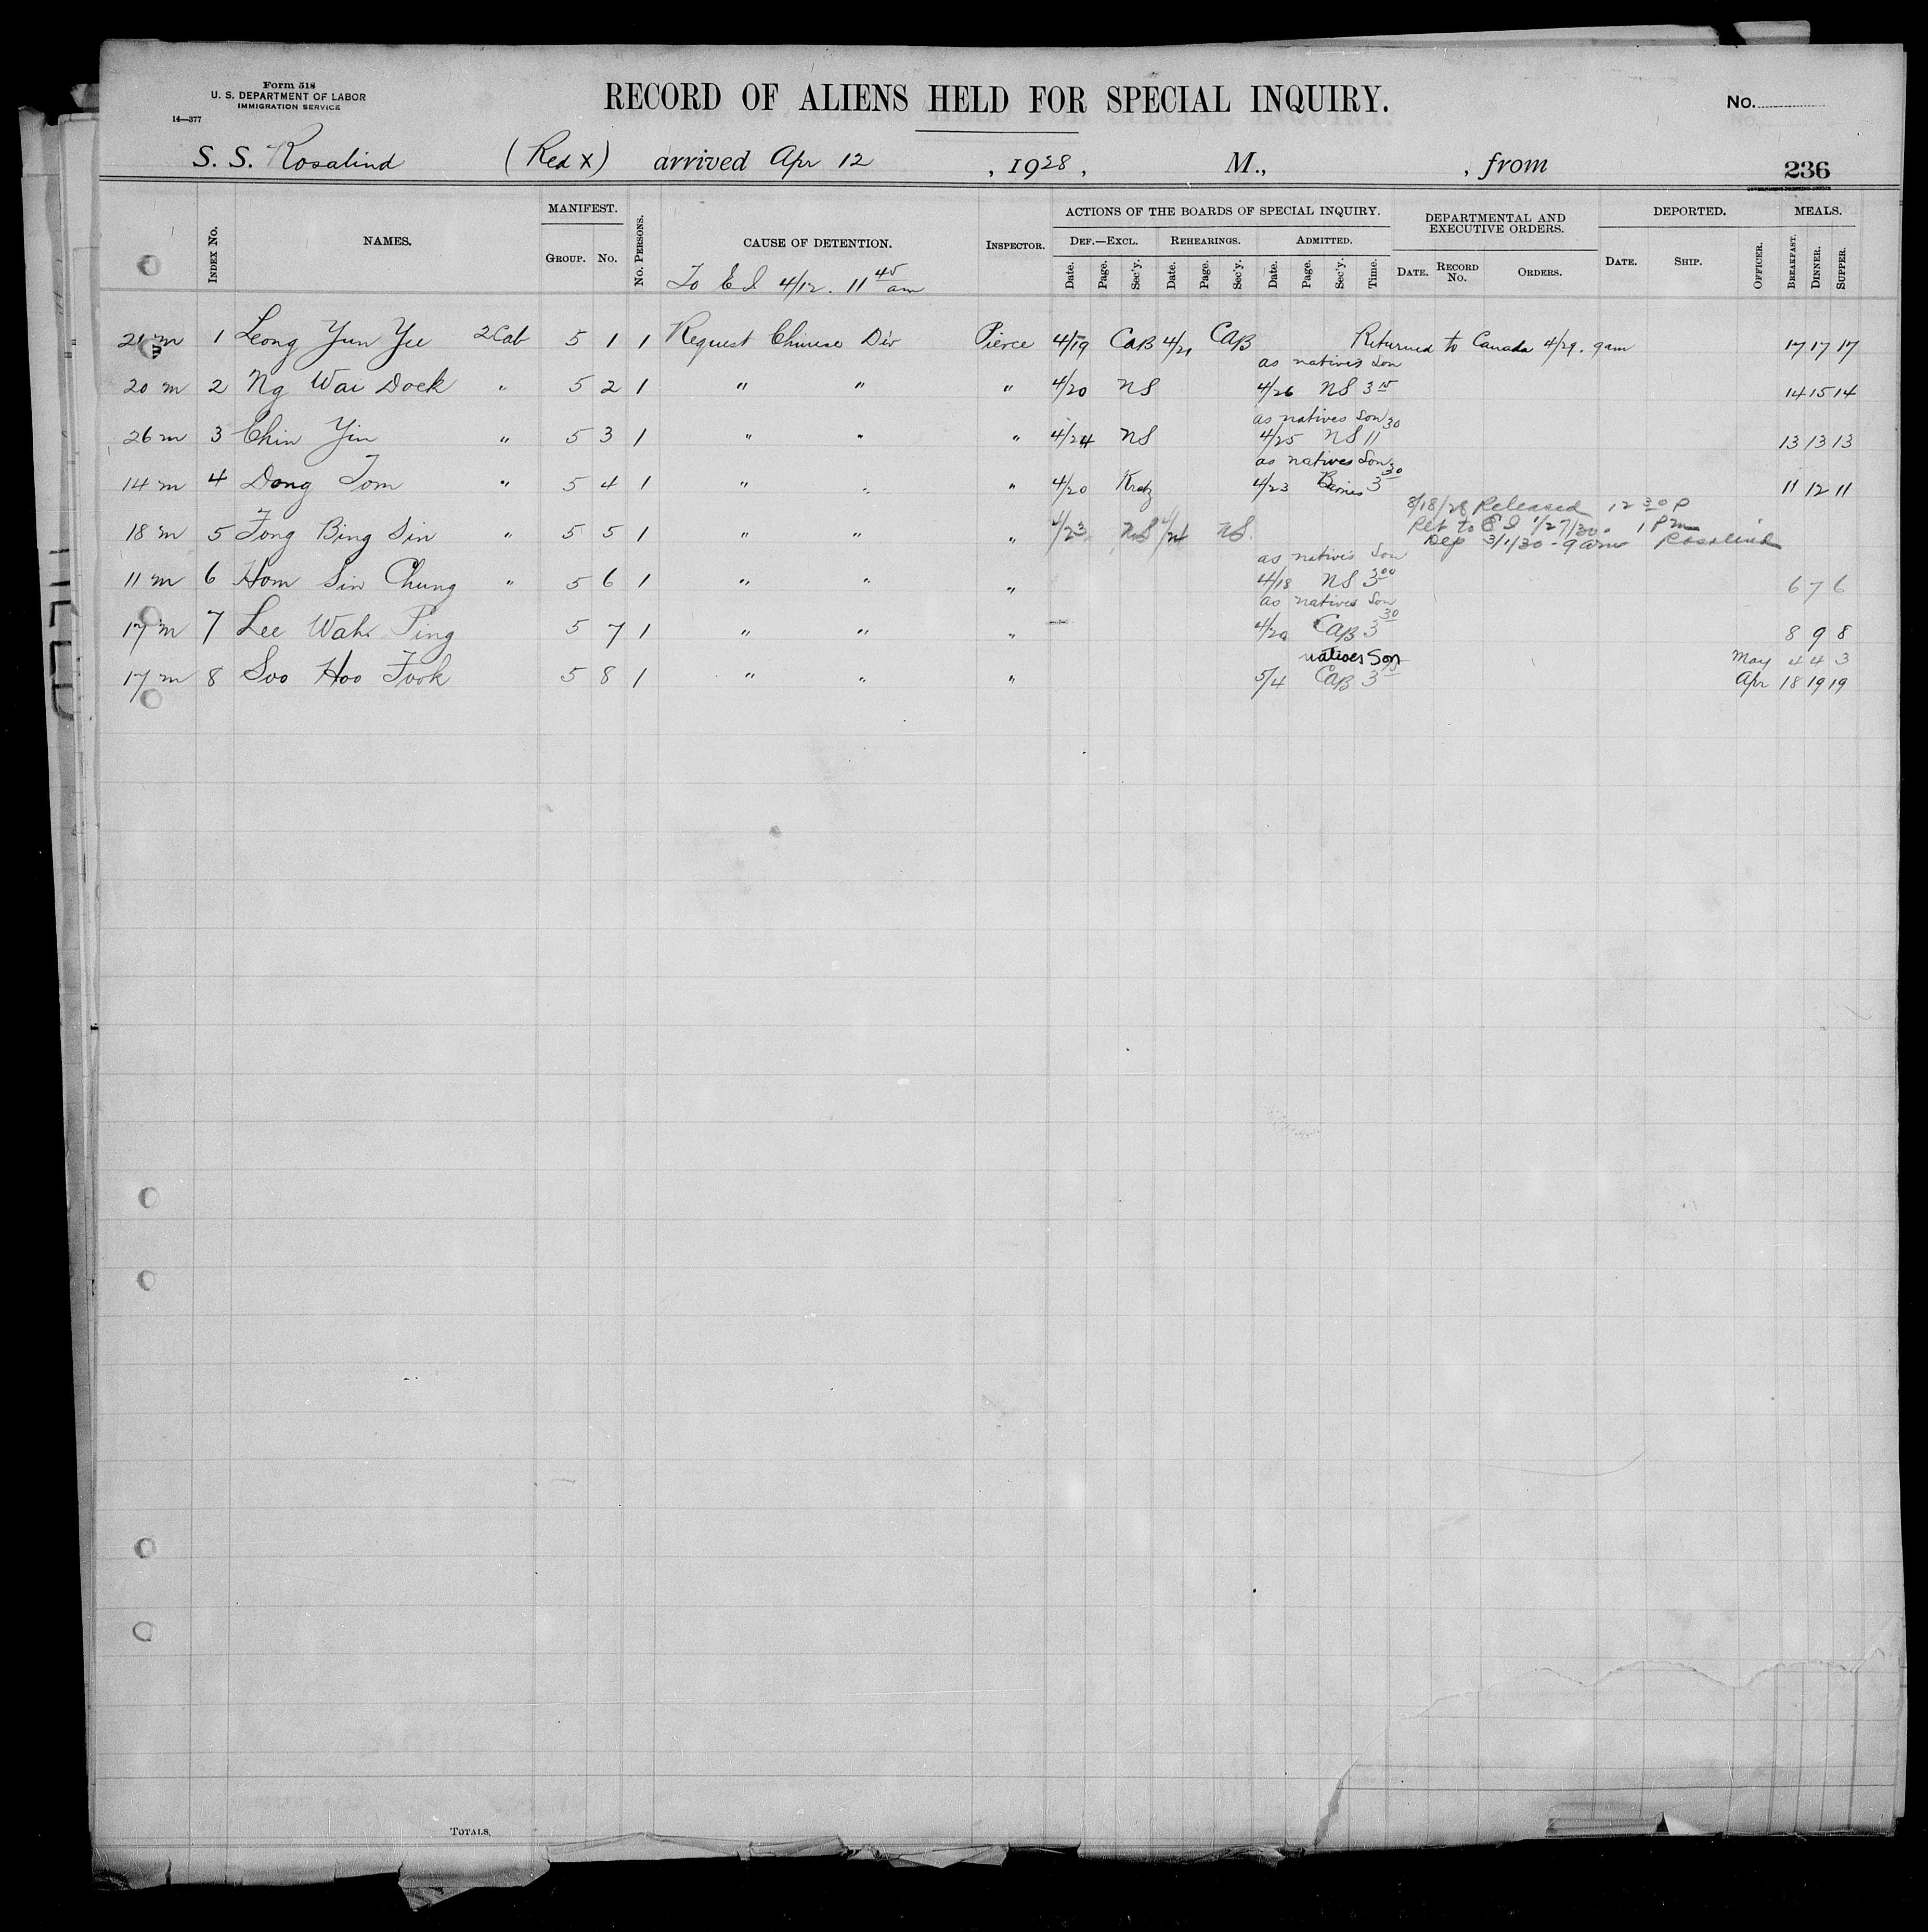 Form 518
U. S. DEPARTMENT OF LABOR
IMMIGRATION SERVICE
14—377
RECORD OF ALIENS HELD FOR SPECIAL INQUIRY.
No.
S. S. Rosalind (Red X) arrived Apr 12, 1928, M., , from 236
GOVERNMENT PRINTING OFFICE
INDEX No. NAMES. MANIFEST. GROUP. No. No. PERSONS. CAUSE OF DETENTION. INSPECTOR. ACTIONS OF THE BOARDS OF SPECIAL INQUIRY. DEF.—EXCL. Date. Page. Sec'y. REHEARINGS. Date. Page. Sec'y. ADMITTED. Date. Page. Sec'y. Time. DEPARTMENTAL AND EXECUTIVE ORDERS. DATE. RECORD No. ORDERS. DEPORTED. DATE. SHIP. OFFICER. MEALS. BREAKFAST. DINNER. SUPPER.
To E I 4/12. 11 45 am
21 m 1 Leong Yun Yee 2 Cab 5 1 1 Request Chinese Div Pierce 4/19 CAB 4/21 CAB Returned to Canada 4/29. 9am 17 17 17
as natives Son
20 m 2 Ng Wai Doek " 5 2 1 " " " 4/20 NS 4/26 NS 3 15 14 15 14
as natives Son
26 m 3 Chin Yin " 5 3 1 " " " 4/24 NS 4/25 NS 11 30 13 13 13
as natives Son
14 m 4 Dong Tom " 5 4 1 " " " 4/20 Kratz 4/23 3 30 11 12 11
8/18/28 Released 12 30 P
Ret to E I 1/27/30. 1 Pm
18 m 5 Fong Bing Sin " 5 5 1 " " 4/23 NS 4/24 NS. Dep 3/1/30 - 9 am Rosalind
as natives Son
11 m 6 Hom Sin Chung " 5 6 1 " " " 4/18 NS 3 00 6 7 6
as natives Son
17 m 7 Lee Wah Ping 5 7 1 " " " 4/20 CAB 3 30 8 9 8
natives Son May 4 4 3
17 m 8 Soo Hoo Fook 5 8 1 " " " 5/4 CAB 3 Apr 18 19 19
TOTALS,